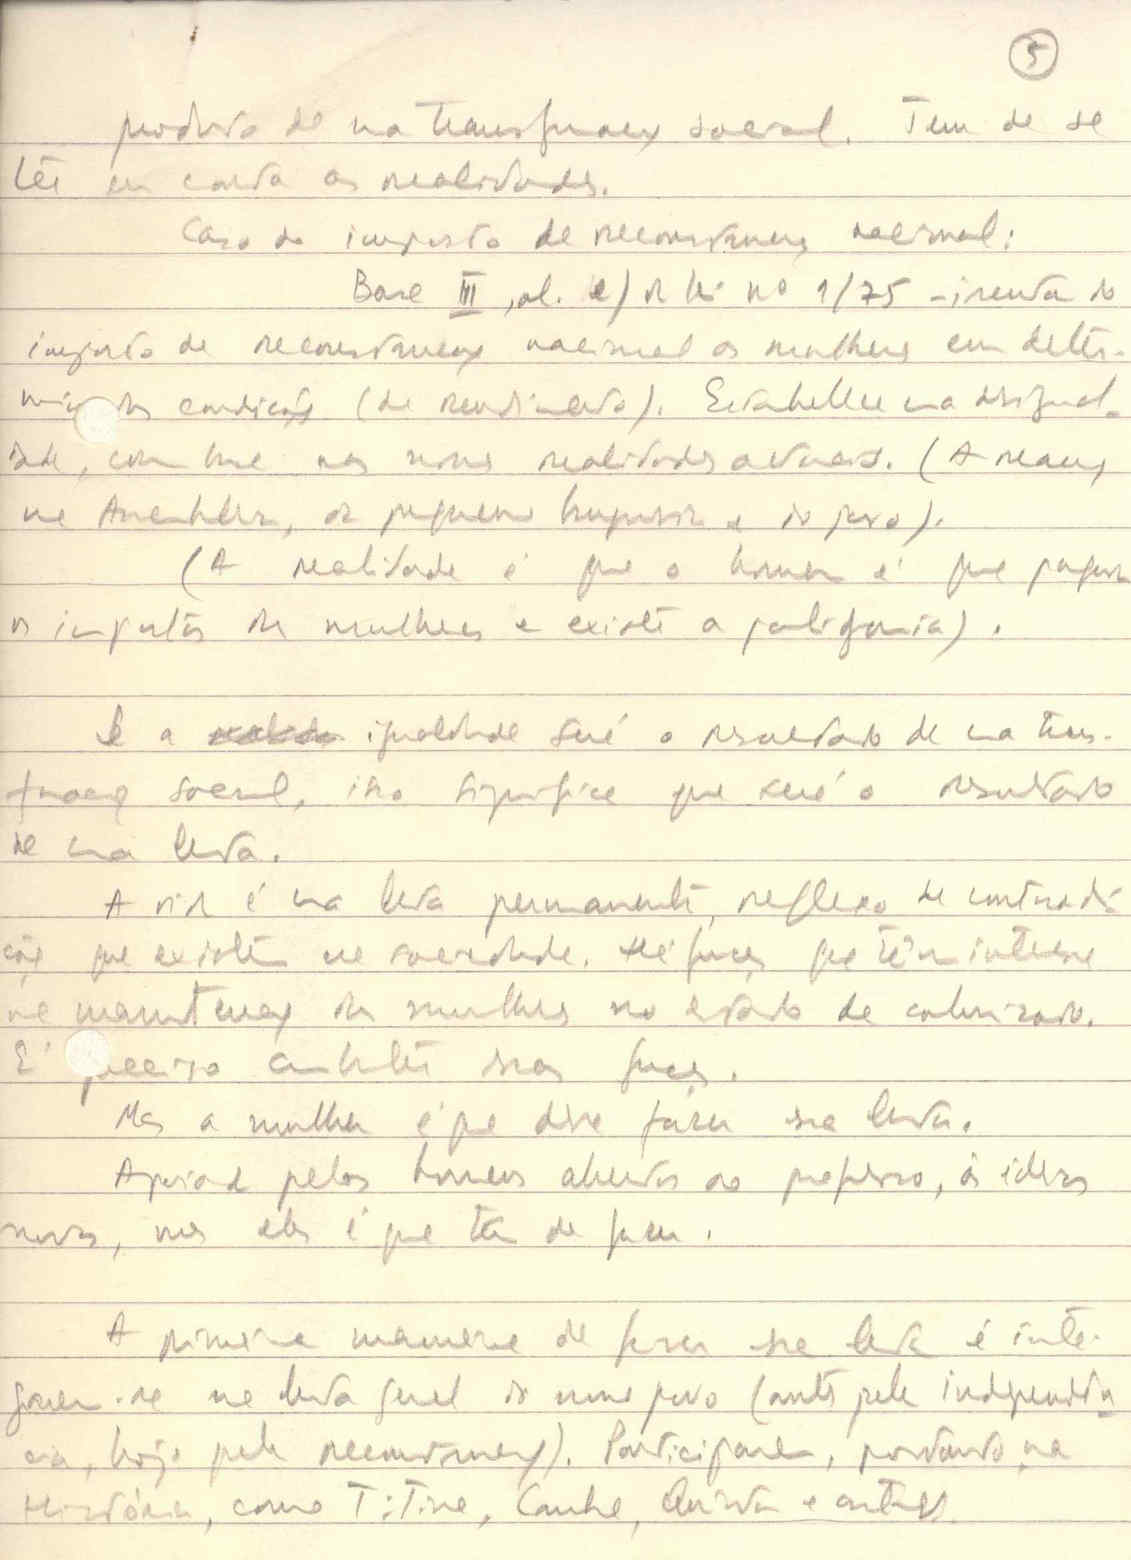 5
produto de uma transformação social. Tem de se
ter em conta as realidades.
Caso do imposto de reconstrução nacional:
Base III, al. e) da Lei nº 1/75 - isenta do
imposto de reconstrução nacional as mulheres em deter-
minadas condições (de rendimento). Estabelece uma desigual-
dade, com base nas nossas realidades actuais. (A reacção
na Assembleia, da pequena burguesia e do povo).
(A realidade é que o homem é que pagava
os impostos das mulheres e existe a poligamia).
Se a igualdade será o resultado de uma trans-
formação social, isso significa que será o resultado
de uma luta.
A vida é uma luta permanente, reflexo de contradi-
ções que existem na sociedade. Há forças que têm interesse
na manutenção da mulher no estado de colonizado.
É preciso combater essas forças.
Mas a mulher é que deve fazer essa luta.
Apoiada pelos homens abertos ao progresso, às ideias
novas, mas elas é que têm de fazer.
A primeira maneira de fazer essa luta é inte-
grarem-se na luta geral do nosso povo (antes pela independên-
cia, hoje pela reconstrução). Participarem, portanto, na
História, como Titina, Canhe, Quinta e outras